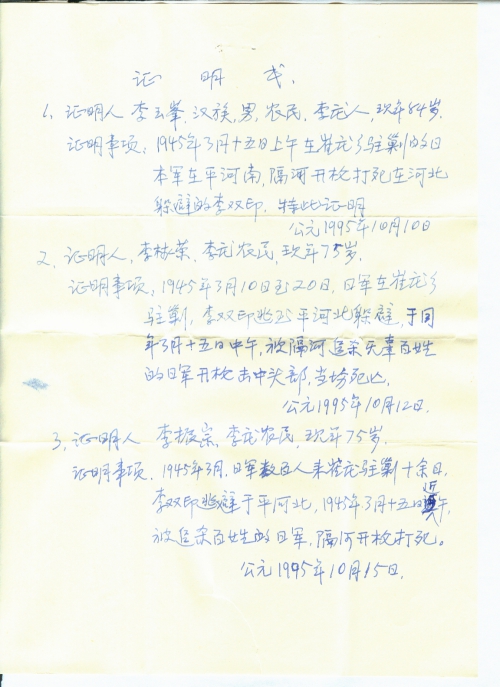 证明书.
1. 证明人 李云峯, 汉族, 男, 农民, 李庄人, 现年84岁.
证明事项: 1945年3月十五日上午在崔庄乡驻剿的日
本军在平河南, 隔河开枪打死在河北
躲避的李双印. 特此证明
公元1995年10月10日
2. 证明人, 李林荣, 李庄农民, 现年75岁.
证明事项: 1945年3月10日至20日, 日军在崔庄乡
驻剿, 李双印逃到平河北躲避, 于同
年3月十五日中午, 被隔河追杀无辜百姓
的日军开枪击中头部, 当场死亡.
公元1995年10月12日.
3. 证明人 李振宗, 李庄农民, 现年75岁.
证明事项. 1945年3月. 日军数百人来崔庄驻剿十余日,
李双印逃避于平河北, 1945年3月十五日近午,
被追杀百姓的日军, 隔河开枪打死。
公元1995年10月15日.